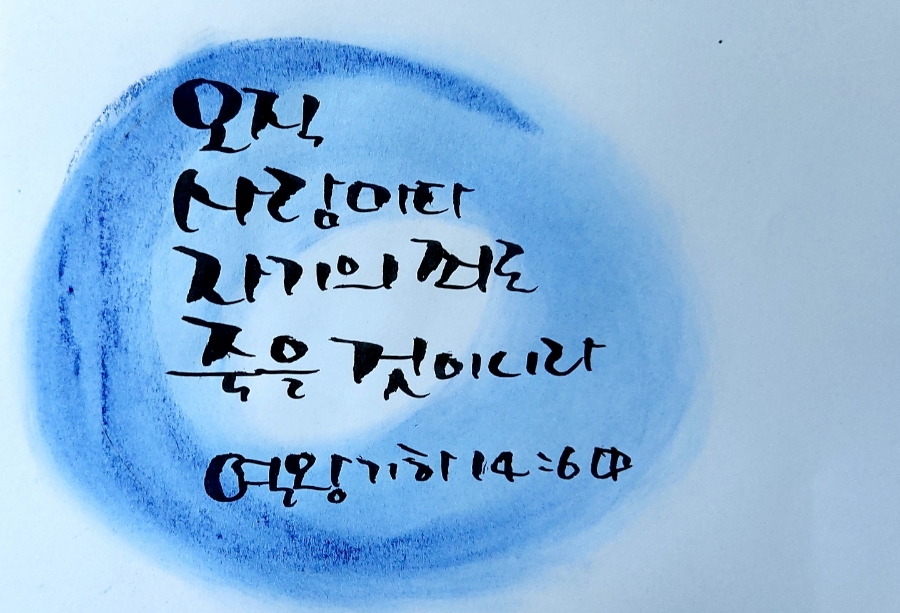 오직
사람마다
자기의 죄로
죽을 것이니라
열왕기하 14:6 中